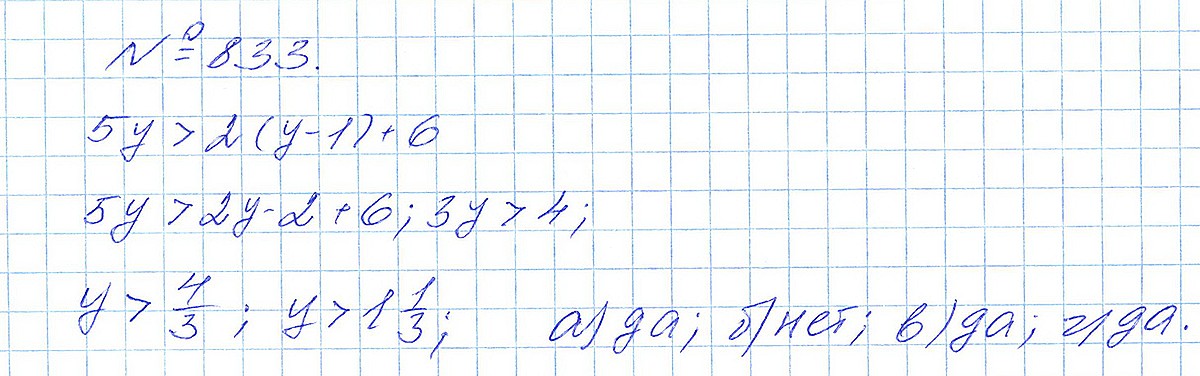 № 833.
5y > 2(y-1)+6
5y > 2y-2+6; 3y > 4;
y > 4/3; y > 1 1/3; а) да; б) нет; в) да; г) да.